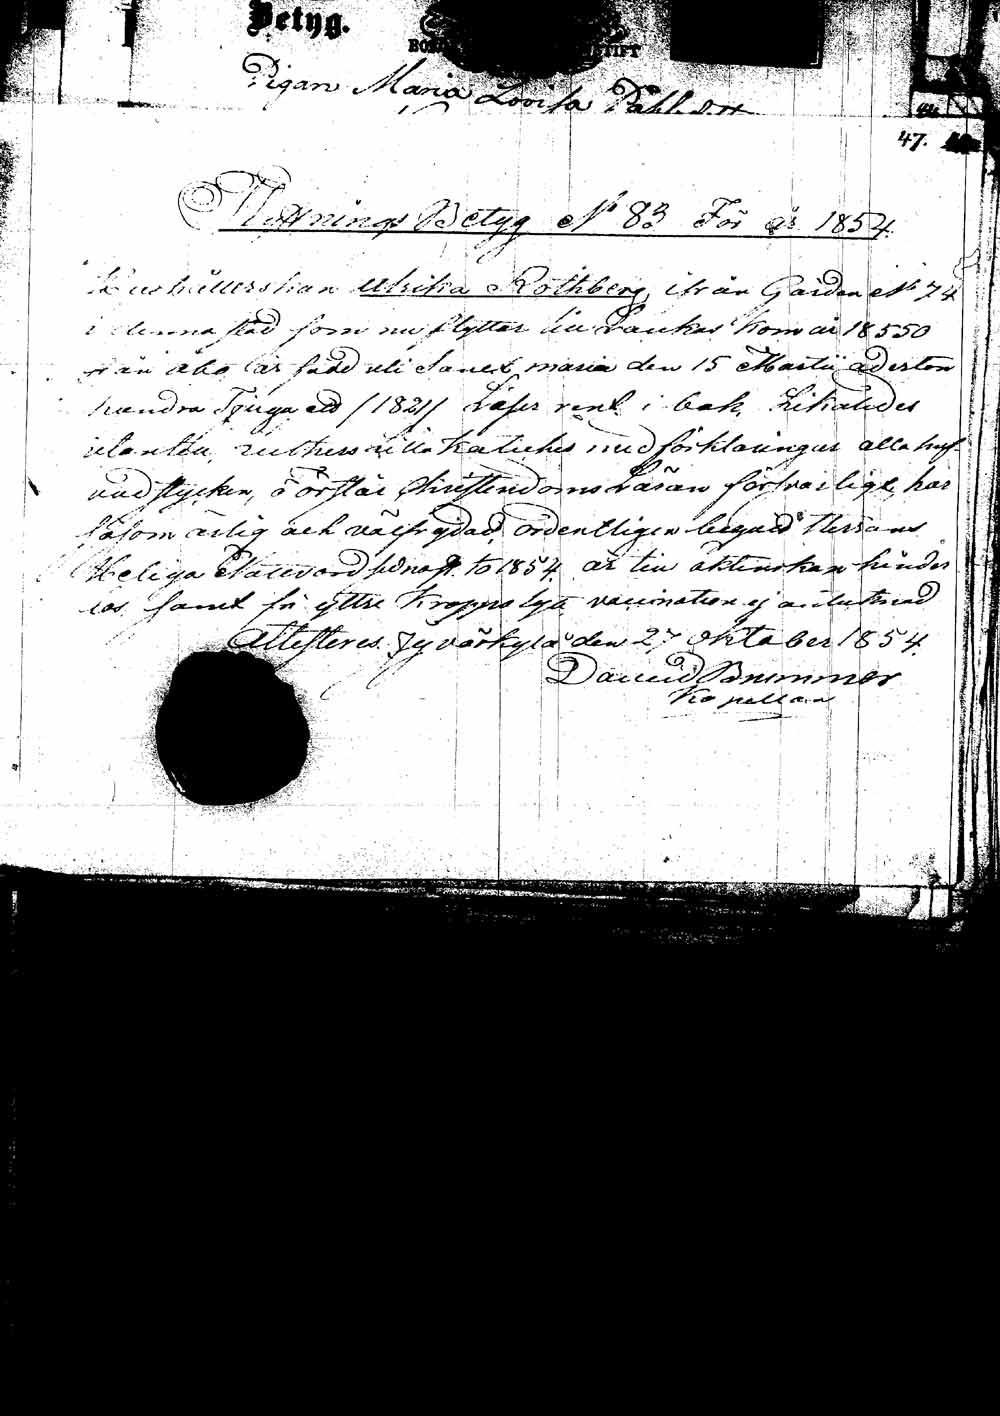 Betyg.
Pigan Maria Lovisa Dahlst
47.
Flyttnings Betyg No 83 För år 1854.
Hushållerskan Ulrika Rothberg, ifrån Gården No 74
i denna stad som nu flyttar till Laukas kom år 18550
från Åbo är född uti Sanct maria den 15 Martii aderton
hundra Tjugu ett /1821/ Läser rent i bok, Likaledes
utantill, Luthers lilla Kateches med förklaringar alla huf-
vudstycken, Förstår Christendoms Läran försvarligt, har
såsom ärlig och välfrejdad, ordentligen begådt Herrans
Heliga Nattvard 1854. är till äktenskap hinder
lös. samt fri yttre Kropps lyte vaccination ej antecknad
Attesteres Jyväskylä den 27 oktober 1854.
David Brummer
Kapellan